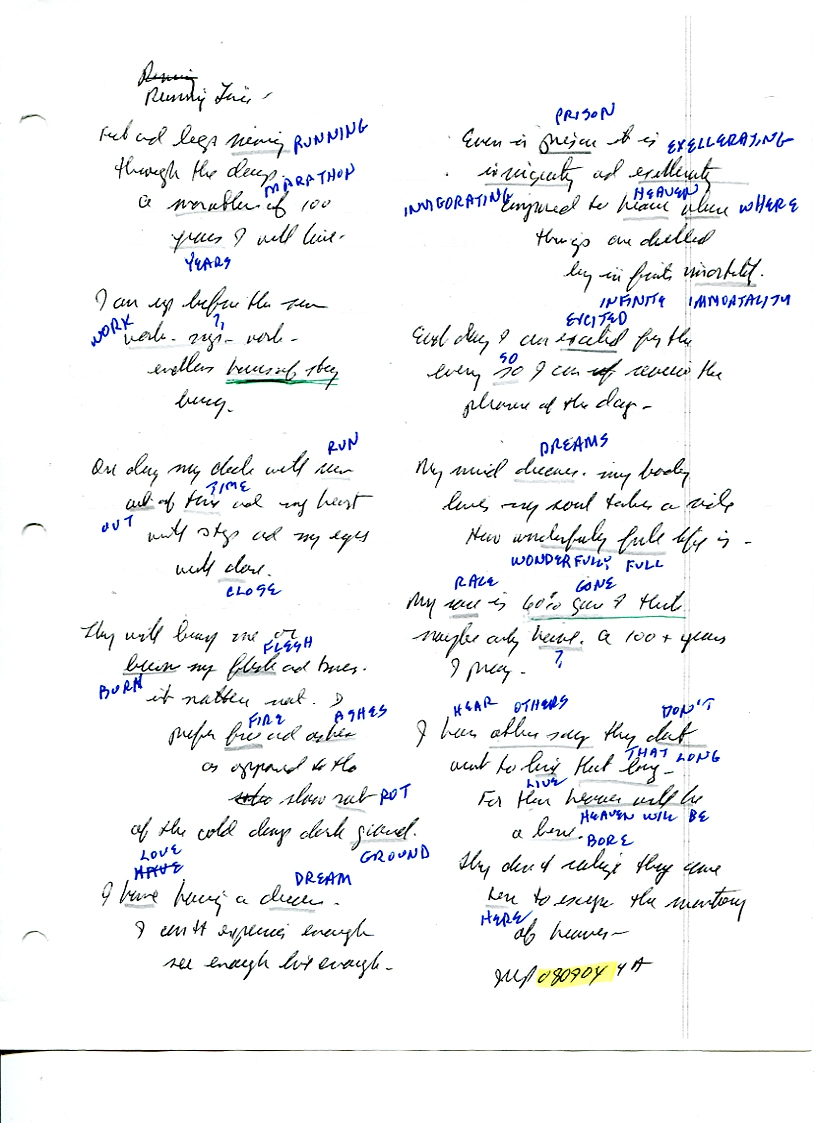 Running
Running Time -
Feet and legs moving RUNNING
through the days.
MARATHON
a marathon of 100
years I will live.
YEARS
I am up before the sun
WORK ?,
work - - work -
endless hours of
busy.
RUN
One day my clock will run
TIME
out of time and my heart
OUT
will stop and my eyes
will close.
CLOSE
They will bury me or
FLESH
burn my flesh and bones.
BURN
it matters not. I
FIRE ASHES
prefer fire and ashes
as opposed to the
slow rot ROT
of the cold damp dark ground.
LOVE GROUND
HAVE
DREAM
I love having a dream.
I can't experience enough
see enough live enough -
PRISON
Even in prison it is EXELLERATING
invigorating and exellerating
INVIGORATING HEAVEN
compared to heaven where WHERE
things are dulled
by infinite immortality.
INFINITE IMMORTALITY
EXCITED
Each day I am excited for the
SO
every so I can the
of the day -
DREAMS
My mind dreams. my body
loves my soul takes a ride
How wonderfully full life is -
WONDERFULLY FULL
RACE GONE
My race is 60% gone I think
maybe only . a 100 + years
?,
I pray.
HEAR OTHERS DON'T
I hear others say they don't
THAT LONG
want to live that long -
LIVE
For them heaven will be
HEAVEN WILL BE
a bore.
BORE
They don't realize they came
here to escape the monotony
HERE
of heaven -
080904 4 A